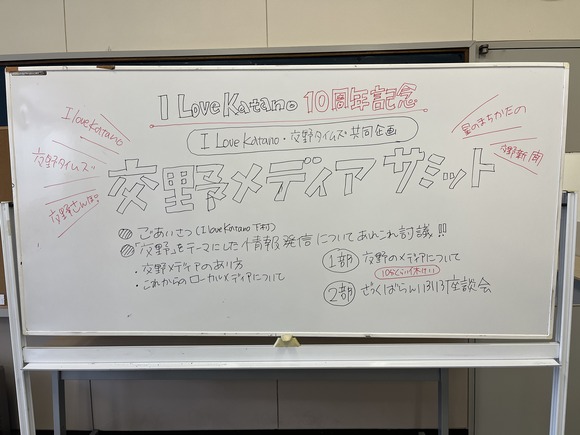 I Love Katano 10周年記念
I Love Katano・交野タイムズ 共同企画
交野メディアサミット
I love Katano
交野タイムズ
交野さんぽ
星のまちかたの
交野新聞
ごあいさつ (I love Katano 下村)
「交野」をテーマにした情報発信についてあれこれ討議!!
・交野メディアのあり方
・これからのローカルメディアについて
1部 交野のメディアについて
10分くらい休けい
2部 ざっくばらんいろいろ座談会